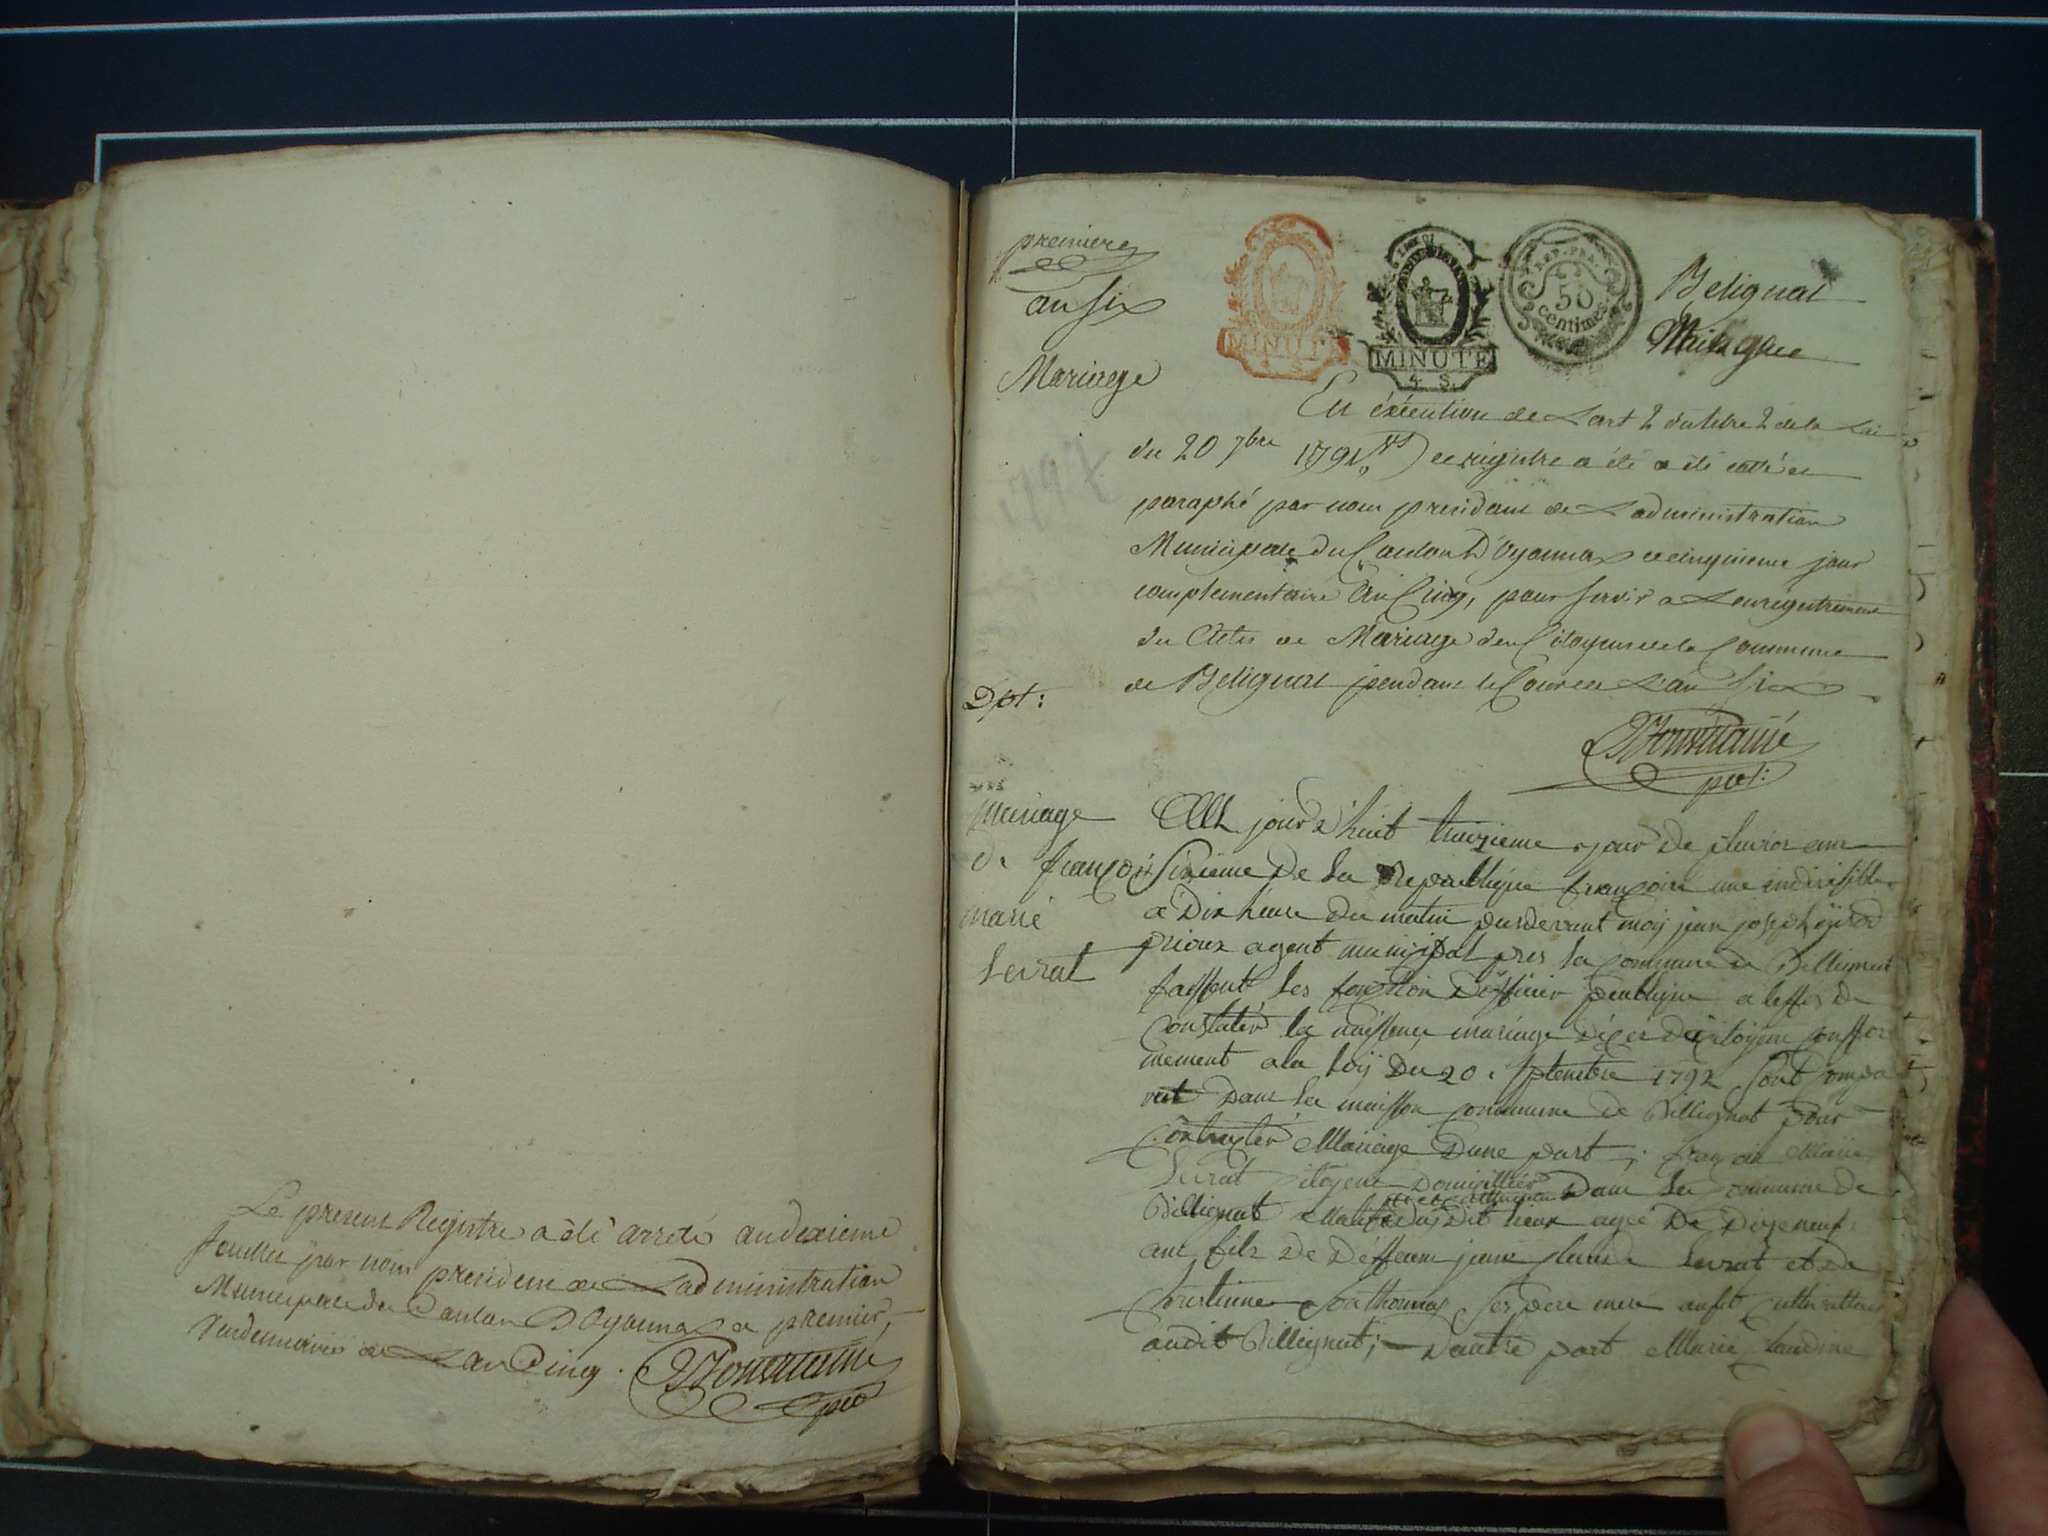 Le present Registre a été arreté au dexieme
feuillet par nous president de L'administration
Municipale du Canton D'Oyonnax ce premier
Vendemiaire de L'an Cinq.
premiere
an six
Mariage
MINUTE
4 S.
MINUTE
4 S.
REP. FRA.
50
centimes
Belignat
En éxécution de L'art 2 du titre 2 de la Loi
du 20 7bre 1792 ce registre a été a été cotté et
paraphé par nous president de L'administration
Municipale du Canton D'Oyonnax ce cinquieme jour
complementaire An Cinq, pour servir a L'enregistrement
des Actes de Mariage des Citoyens de la Commune
de Belignat pendant le Cours de L'an Six
Dpt:
pdt:
Mariage
de françois
marie
Levrat
jourd'huit treizieme jour De pluvios ans
Sixieme De La Republique françoise une indivisible
a Dix heure Du matin pardevant moy jean joseph
prioux agent municipal pres la Commune de Bellignat
faissent Les fonction D'officier publique a leffes De
Constater la naissence mariage déces De Citoyens Conffor
mement a la Loÿ Du 20 Septembre 1792 Sont Compa
rut Dans La maisson Commune de Billignat pour
Contracter Mariage Dune part, françois Marie
Levrat Citoyens Domicillier Dans La Commune de
Billignat Dudit Lieux agée De Dizeneuf
ans fils De Deffeunt jean Claude Levrat et De
Christinne Sonthonnax Ses pere mere
audit Billignat; Dautre part Marie Claudine